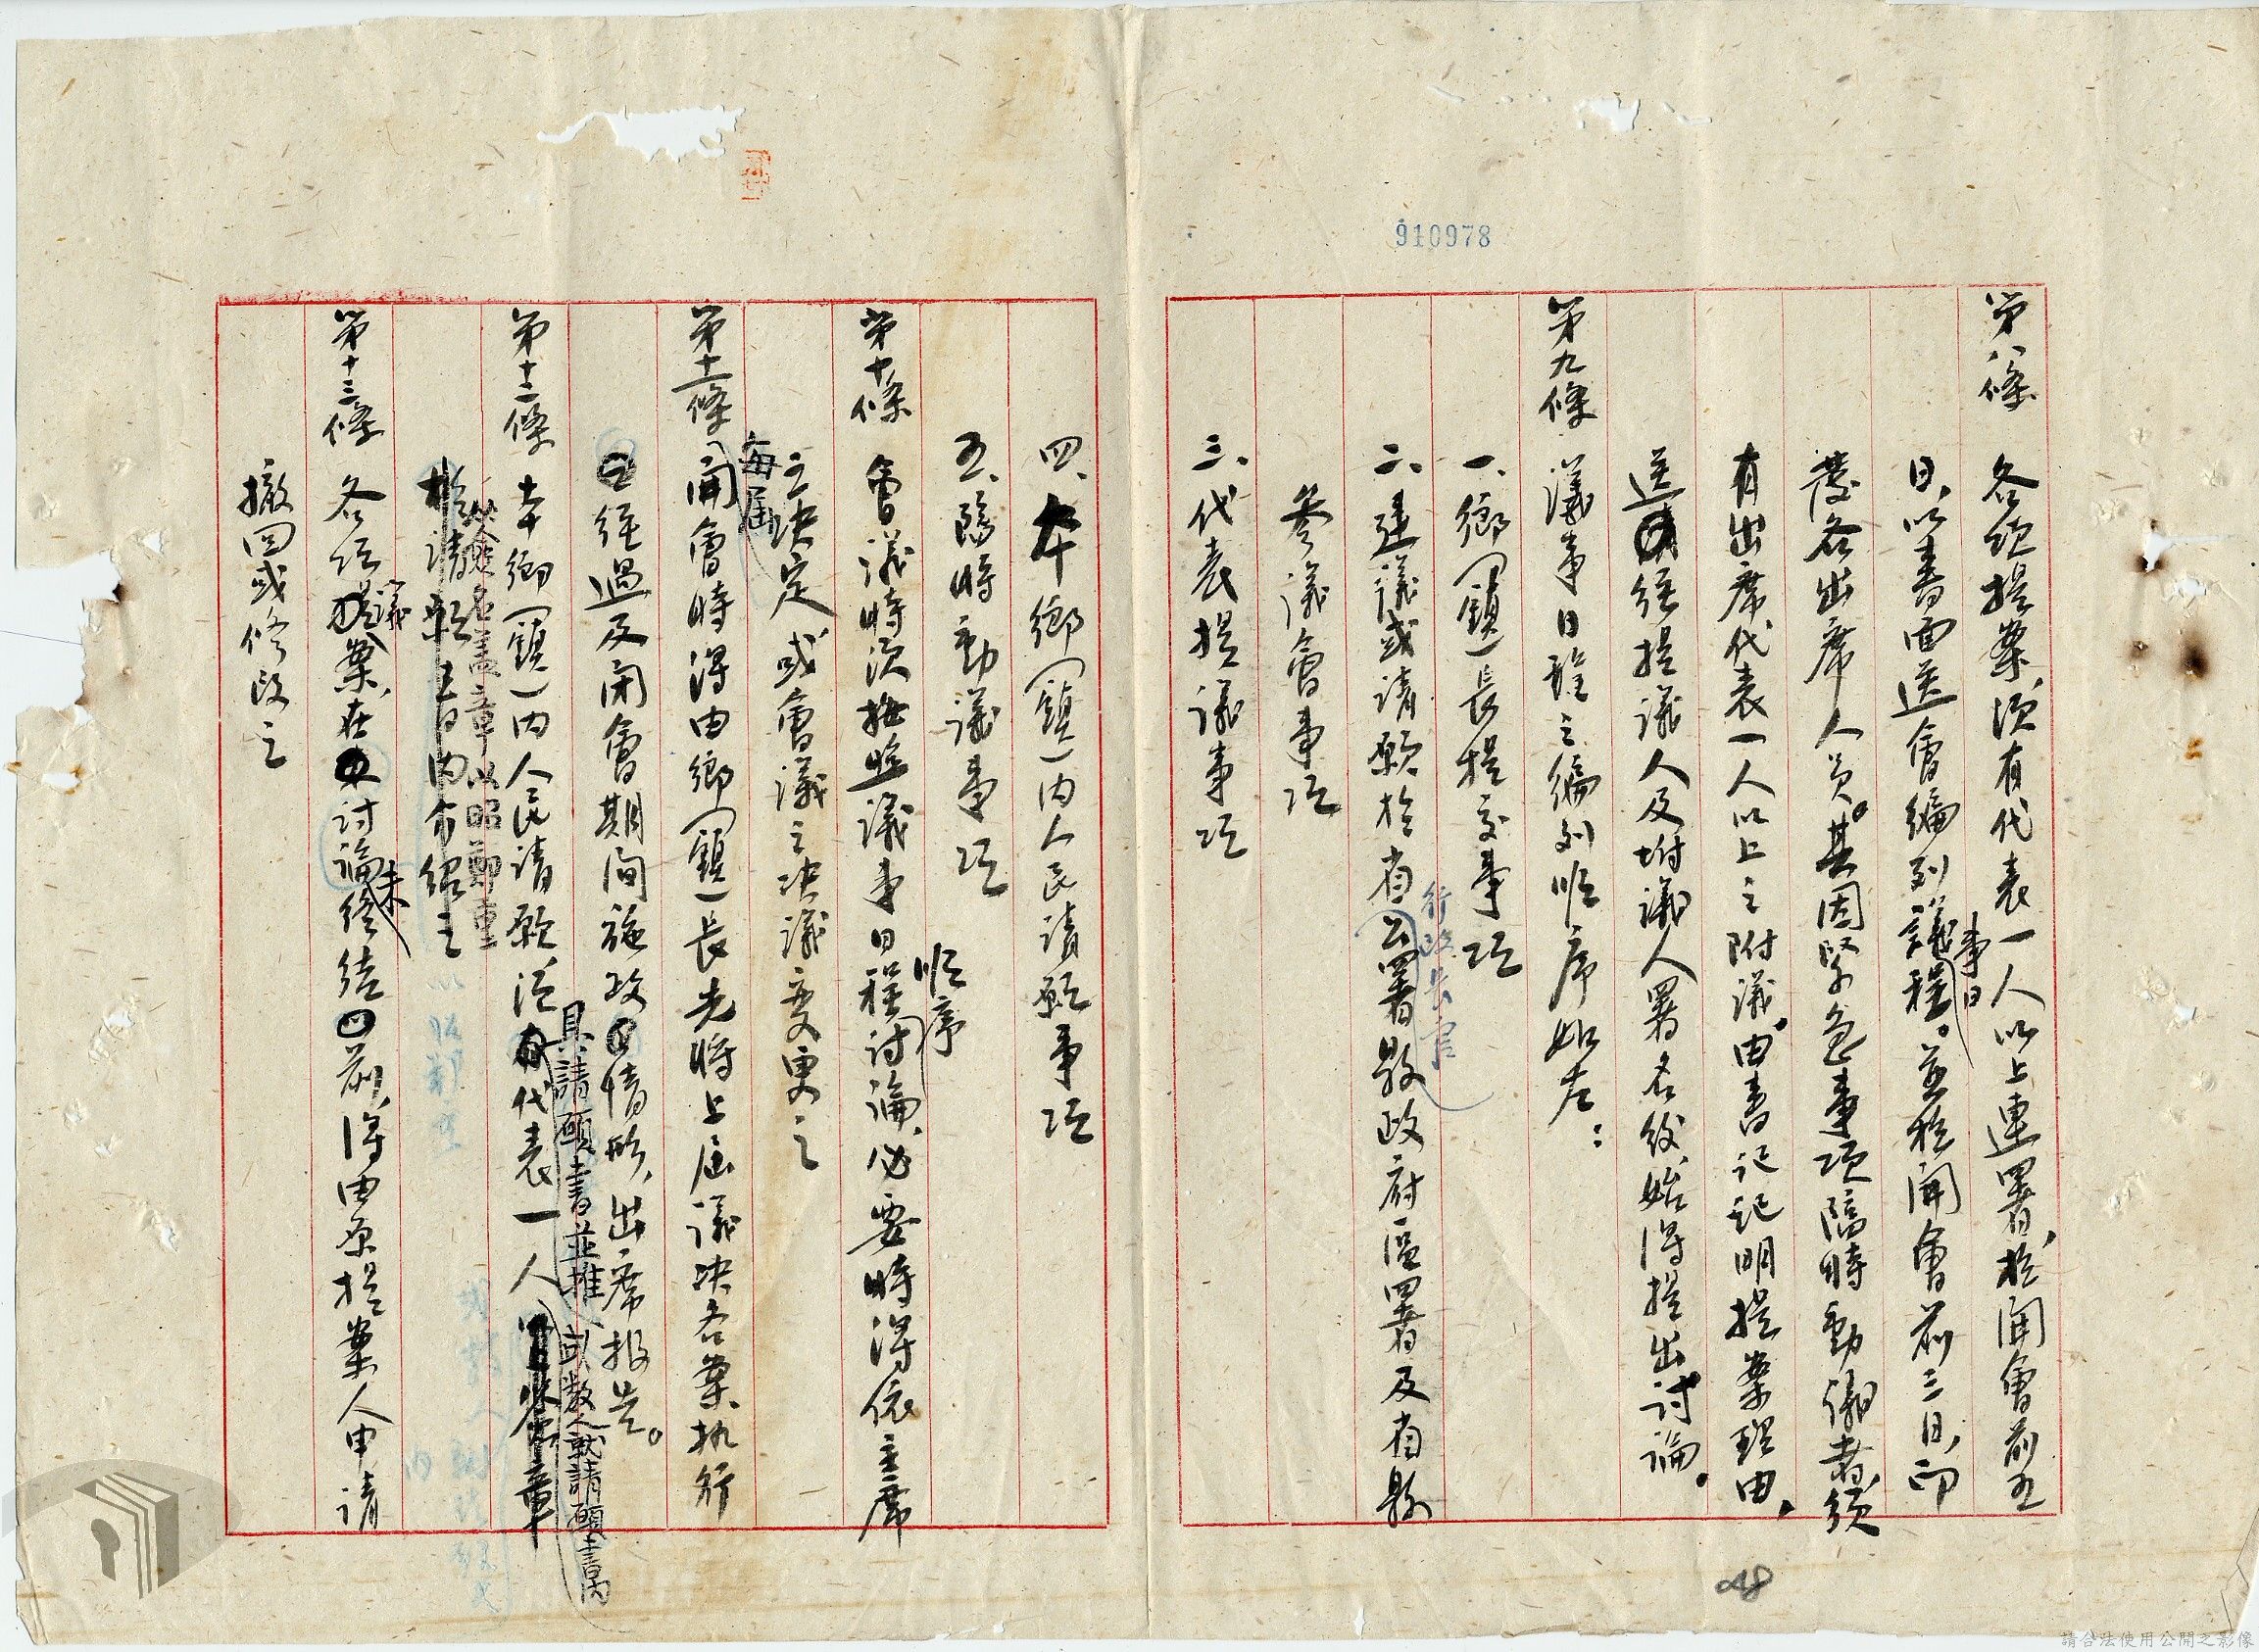 910978
第八條 各項提案,須有代表一人以上連署,於開會前五
日,以書面送會編列議事日程。並於開會前三日,印
發各出席人員。其因緊急事項臨時動議者,須
有出席代表一人以上之附議,由書記記明提案理由,
送經提議人及附議人署名後,始得提出討論。
第九條 議事日程之編列順序如左:
一、鄉(鎮)長提交事項
二、建議或請願於省公署縣政府區署及省縣
行政長官
參議會事項
三、代表提議事項
48
四、本鄉(鎮)內人民請願事項
五、臨時動議事項
第十條 會議時須按照議事日程順序討論,必要時得依主席
之決定或會議之決議變更之
第十一條 每屆開會時得由鄉(鎮)長先將上屆議決各案執行
經過及閉會期間施政情形,出席報告。
第十二條 本鄉(鎮)內人民請願,須具請願書並推代表一人或數人就請願書內
簽名蓋章以昭鄭重
第十三條 各項議案,在討論未終結前,得由原提案人申請
撤回或修改之
請合法使用公開之影像